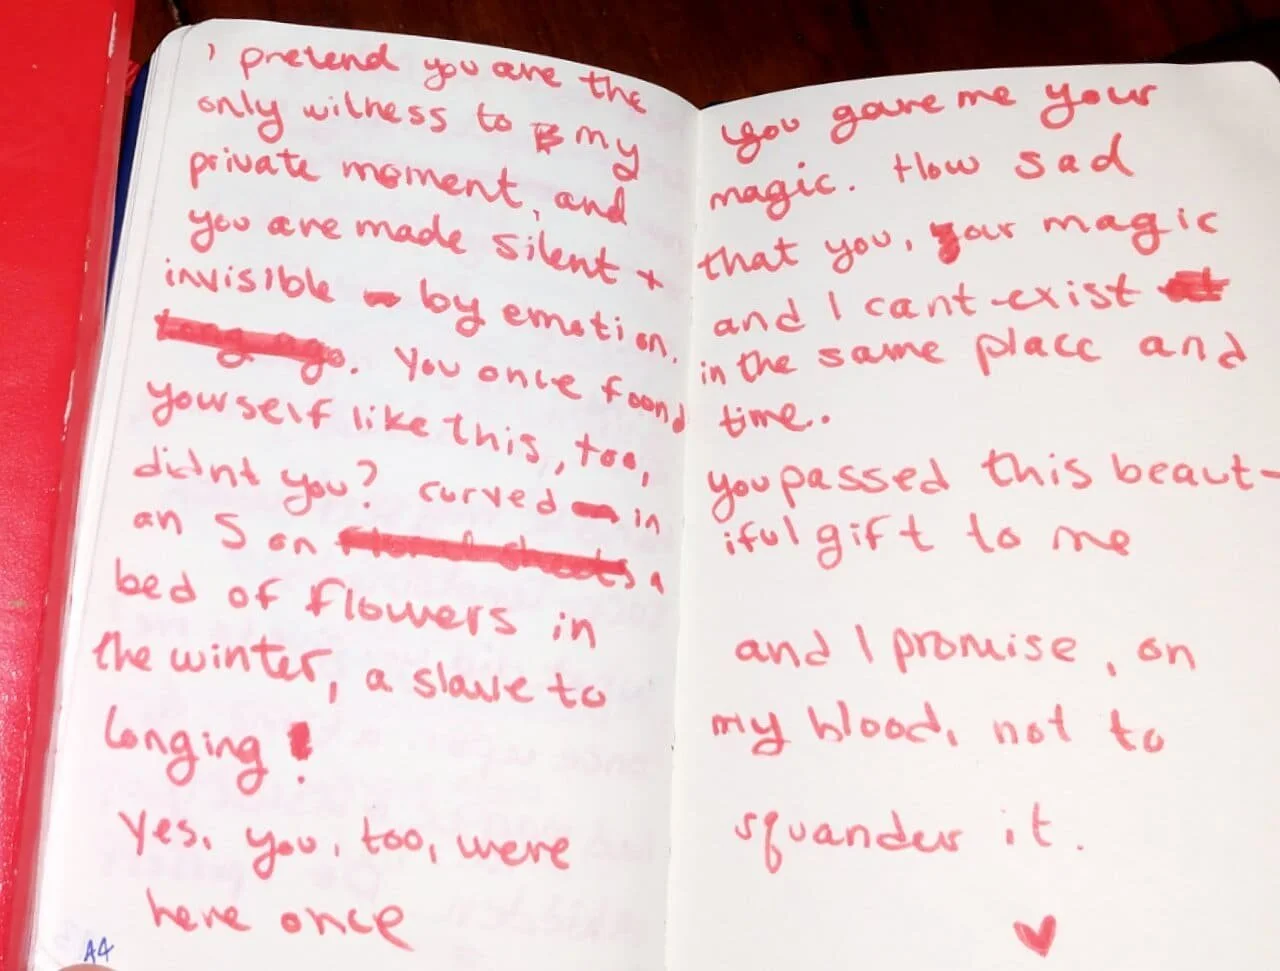 I pretend you are the
only witness to my
private moment, and
you are made silent +
invisible by emotion.
. You once foond
yourself like this, too,
didnt you? curved in
an S on a
bed of flowers in
the winter, a slave to
longing!
Yes, you, too, were
here once
A4
You gave me your
magic. How sad
that you, your magic
and I cant exist
in the same place and
time.
you passed this beaut-
iful gift to me
and I promise, on
my blood, not to
squander it.